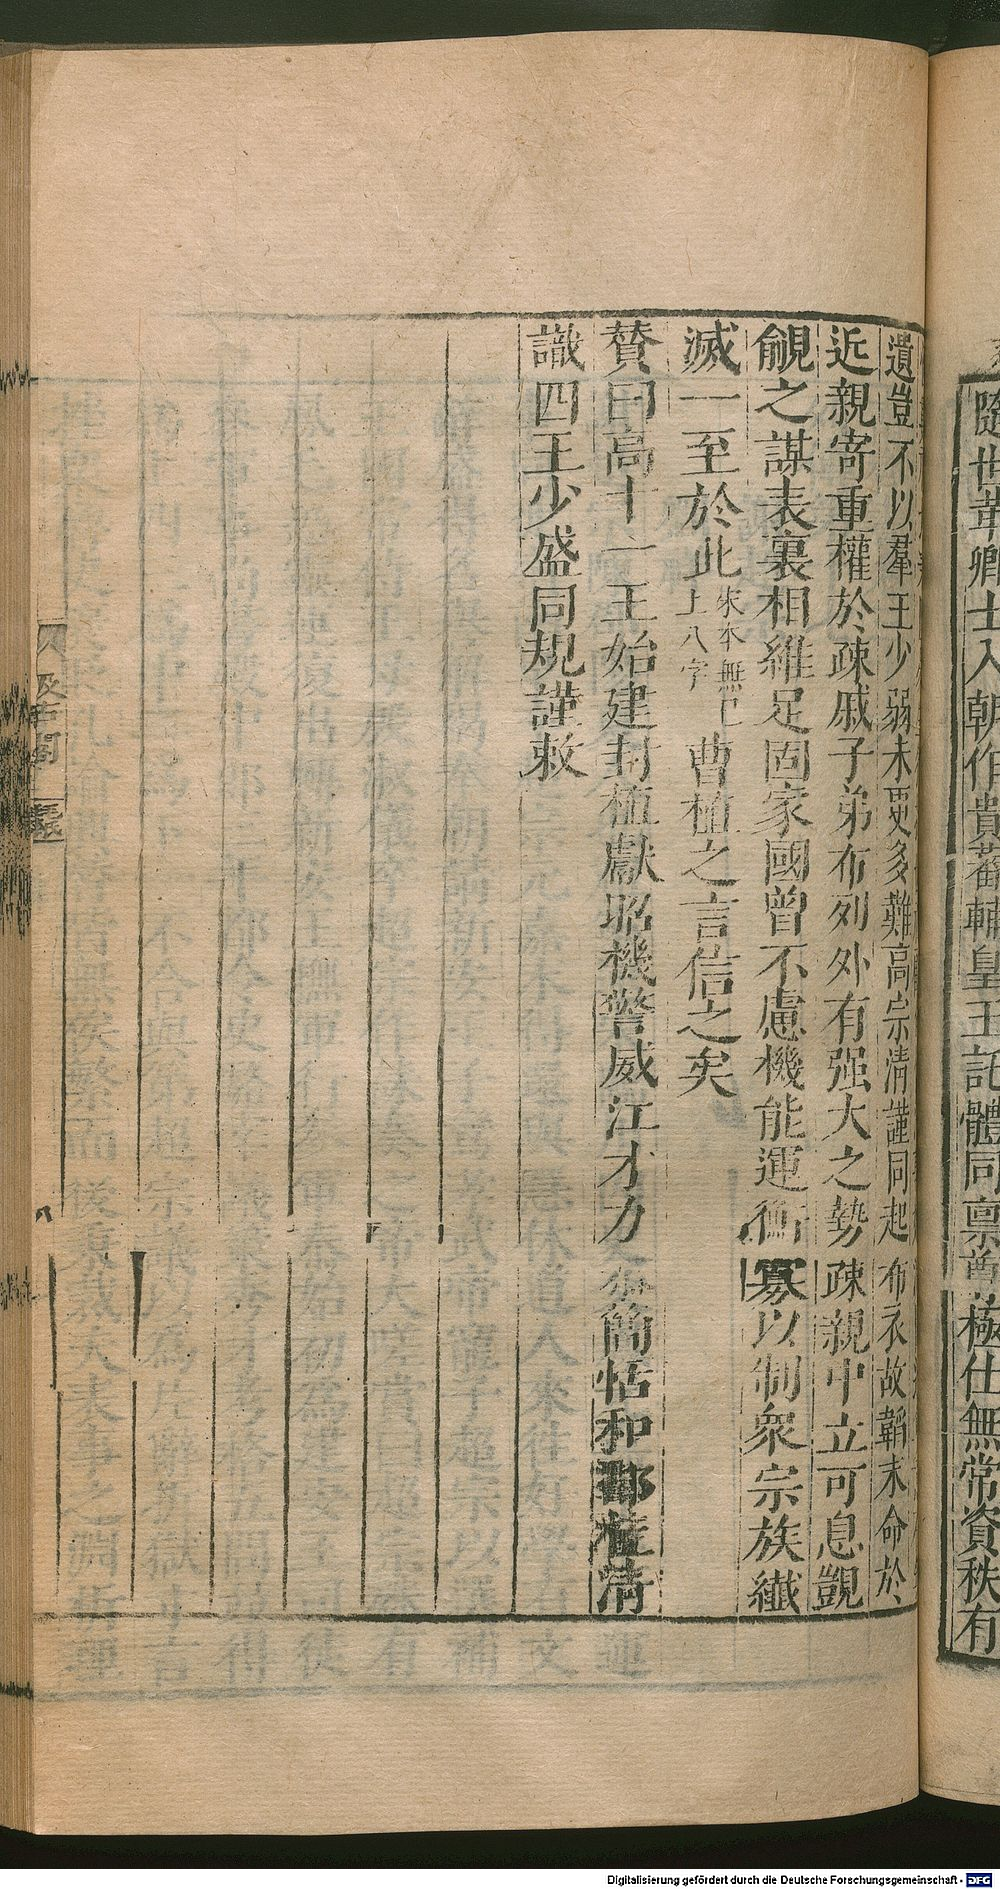 隨世革卿士入朝作貴蕃輔皇王託體同稟尊極仕無常資秩有
遺豈不以羣王少弱未更多難高宗清謹同起布衣故韜末命於
近親寄重權於疎戚子弟布列外有强大之勢疎親中立可息覬
覦之謀表裏相維足固家國曾不慮機能運衡寡以制衆宗族纎
滅一至於此宋本無已上八字曹植之言信之矣
贊曰高十二王始建封植獻昭機警威江才力簡恬和鄱桂清
識四王少盛同規謹敕
汲古閣
Digitalisierung gefördert durch die Deutsche Forschungsgemeinschaft - DFG